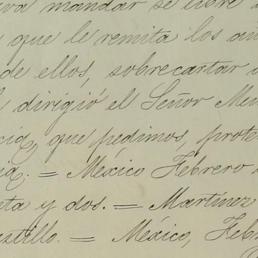 mandar se libre
que le remita los au
de ellos, sobrecartar
dirigió el Señor Men
cia, que pedimos, prote
cia. = México Febrero
ta y dos. = Martínez
astillo. = México, Feb